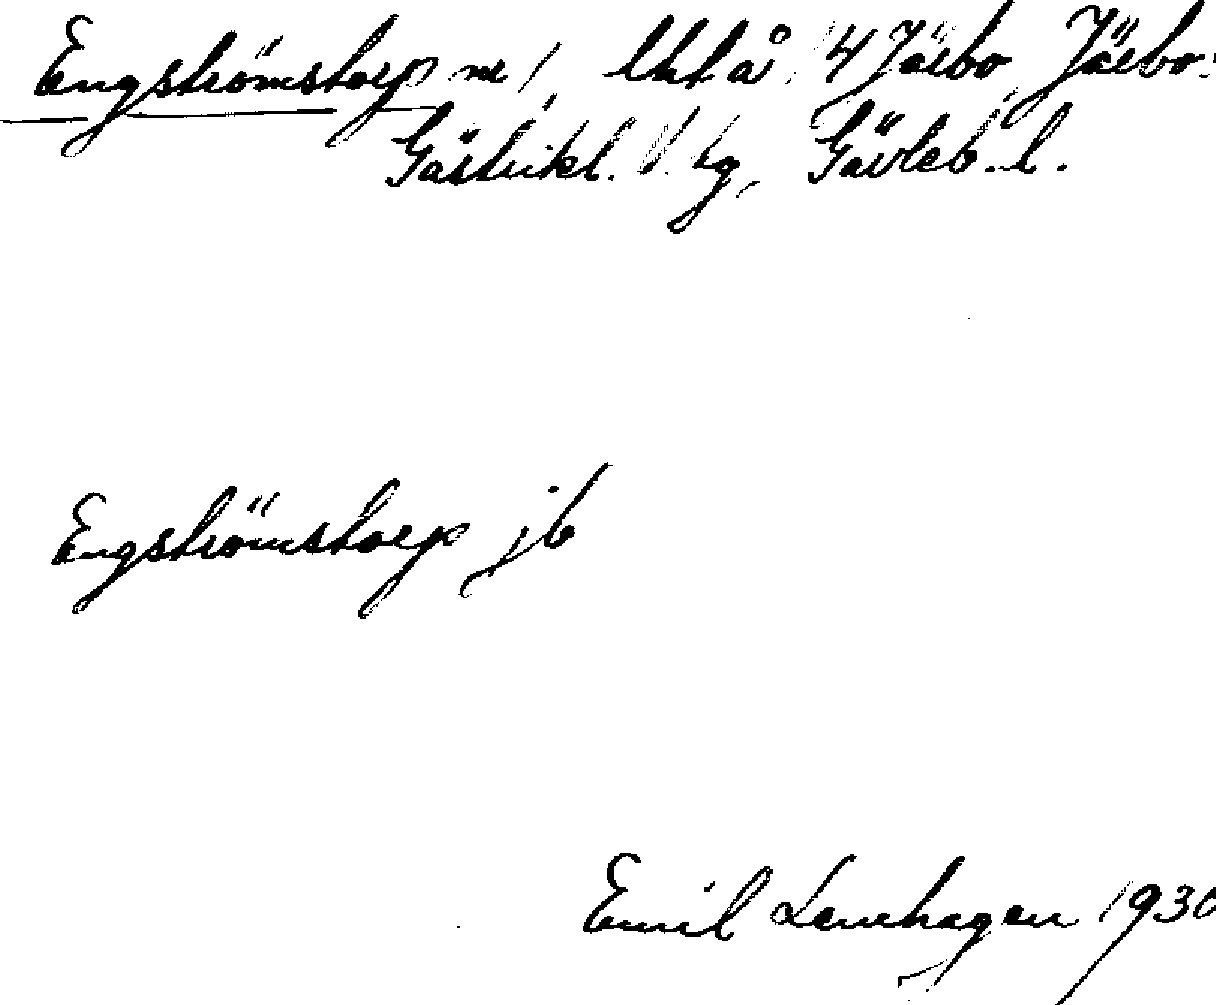 Engströmstorp m/, lht å 4 Järbo, Järbo:
Gästrikl. V. tg, Gävleb. l.
Engströmstorp jb
Emil Lenhagen 1930